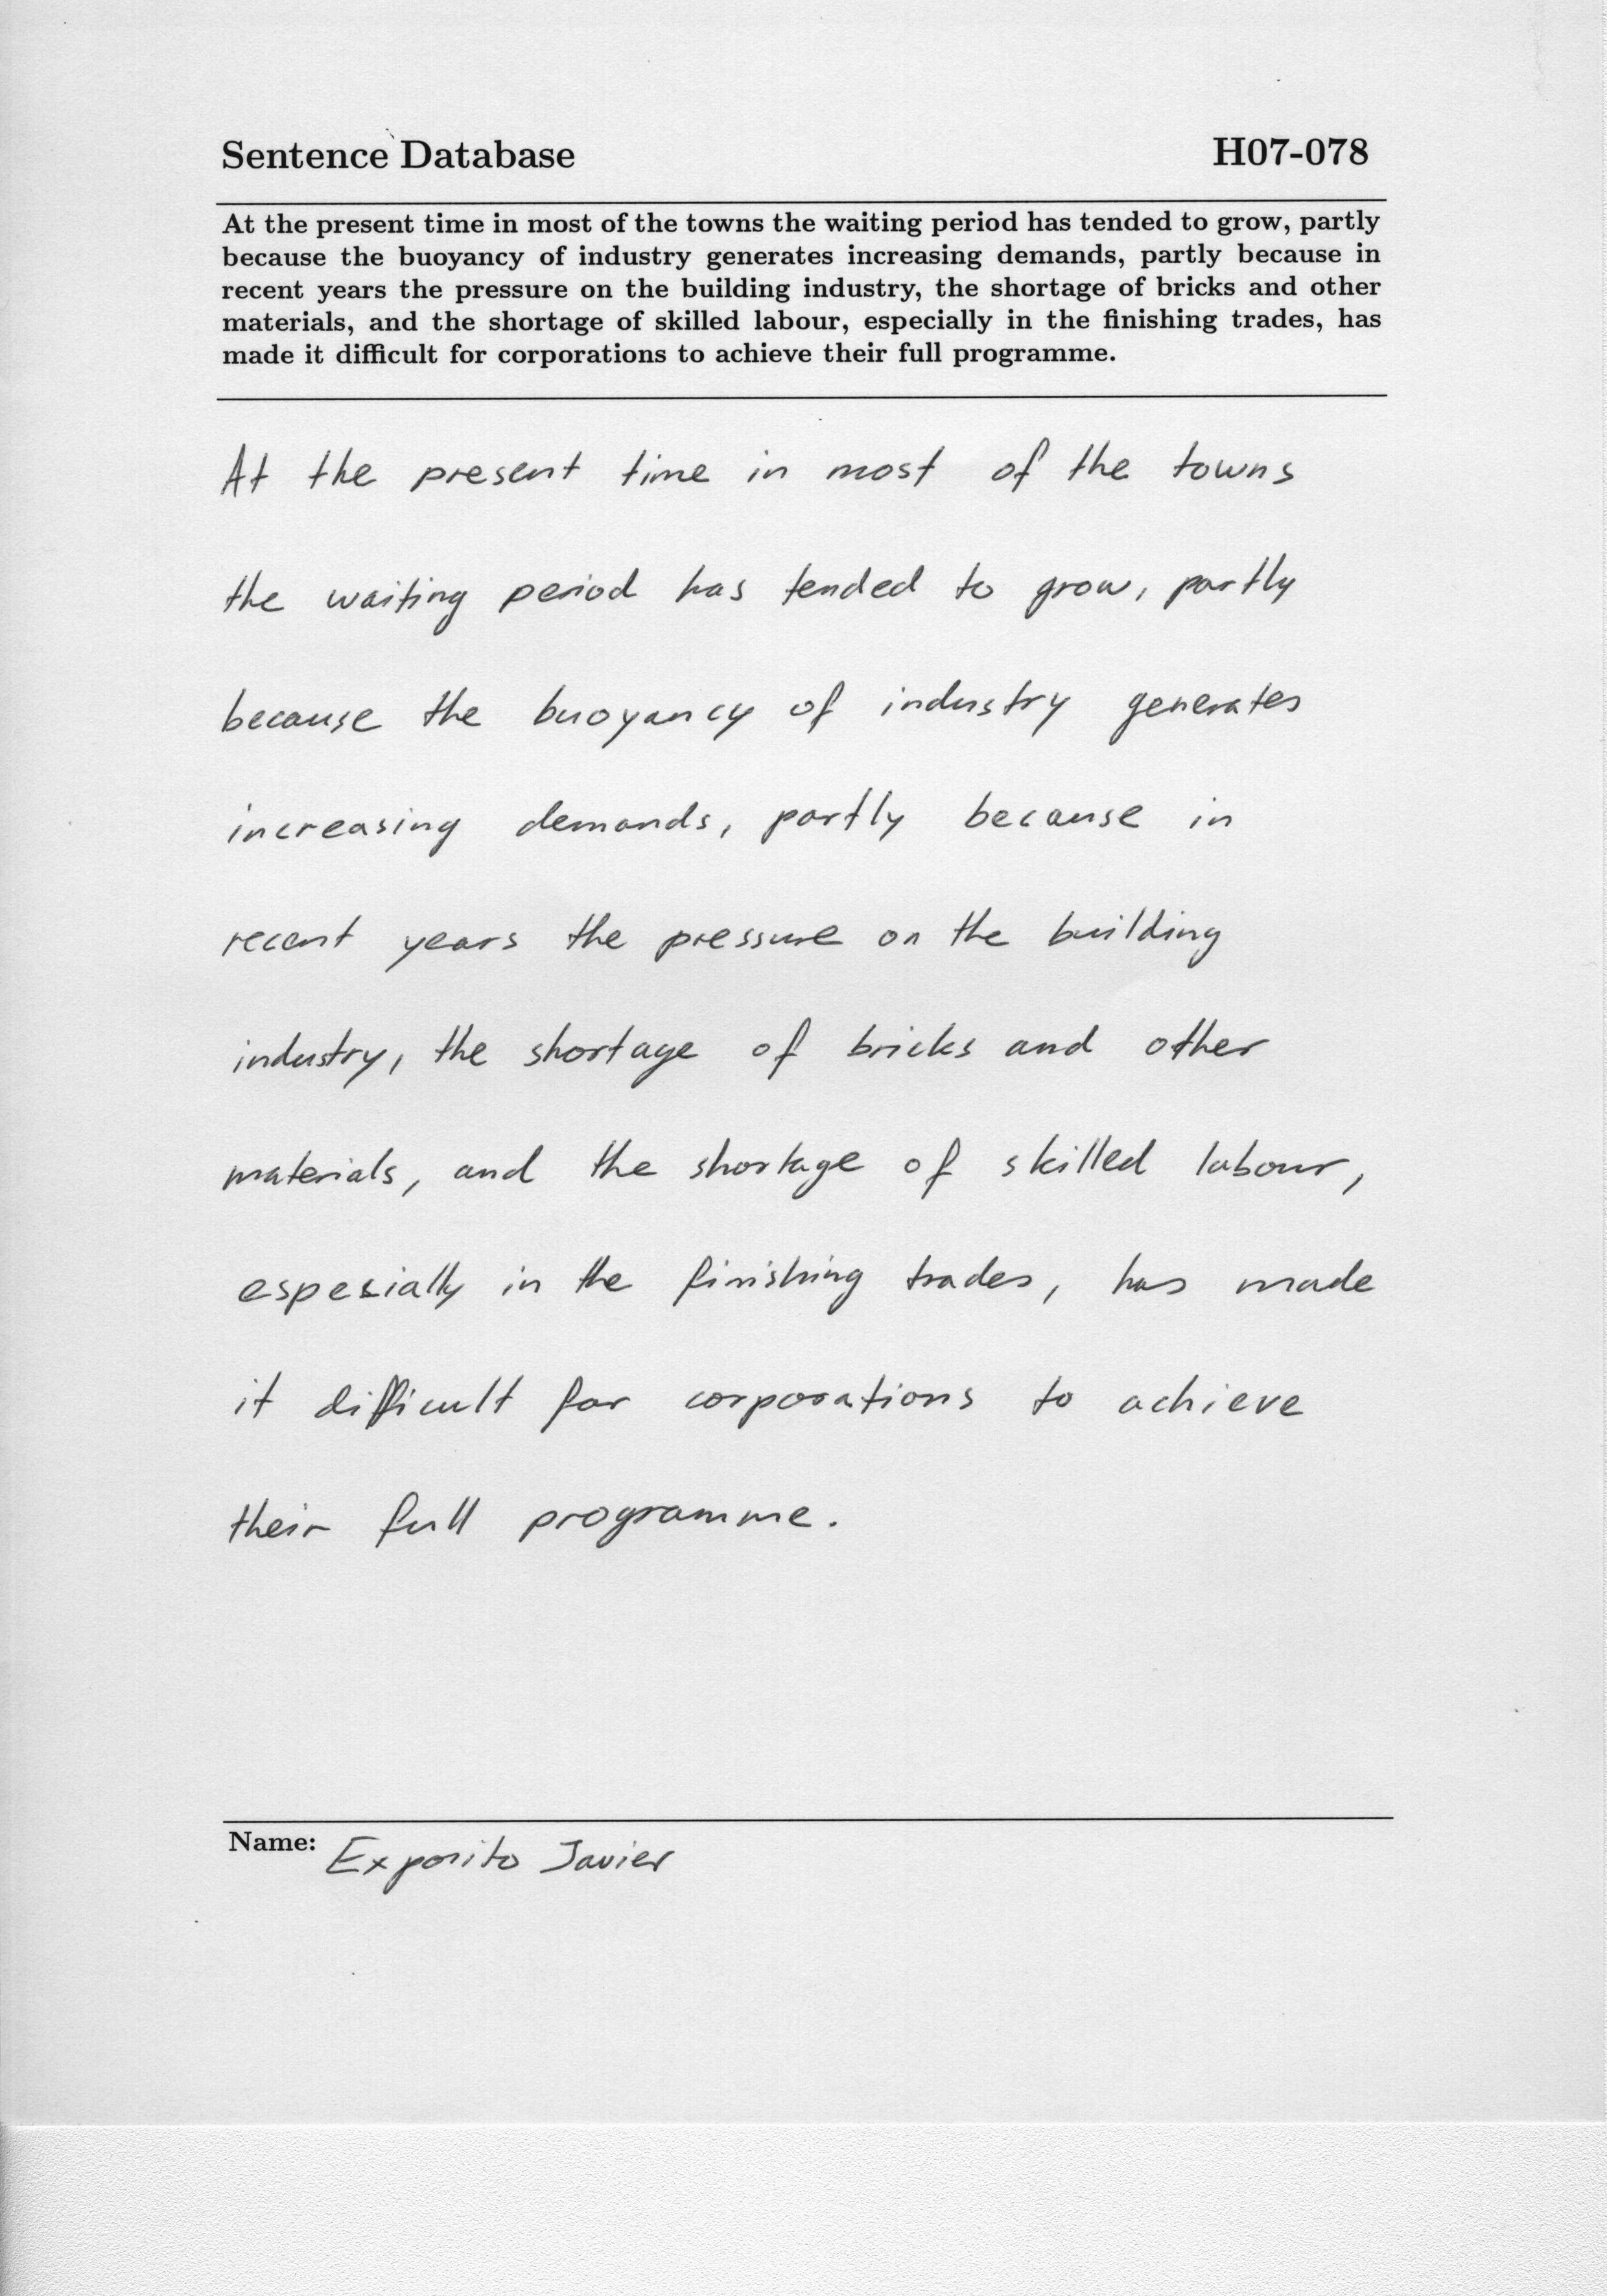 Sentence Database
H07-078
At the present time in most of the towns the waiting period has tended to grow, partly
because the buoyancy of industry generates increasing demands, partly because in
recent years the pressure on the building industry, the shortage of bricks and other
materials, and the shortage of skilled labour, especially in the finishing trades, has
made it difficult for corporations to achieve their full programme.
At the present time in most of the towns
the waiting period has tended to grow, partly
because the buoyancy of industry generates
increasing demands, partly because in
recent years the pressure on the building
industry, the shortage of bricks and other
materials, and the shortage of skilled labour,
especially in the finishing trades, has made
it difficult for corporations to achieve
their full programme.
Name: Exposito Javier